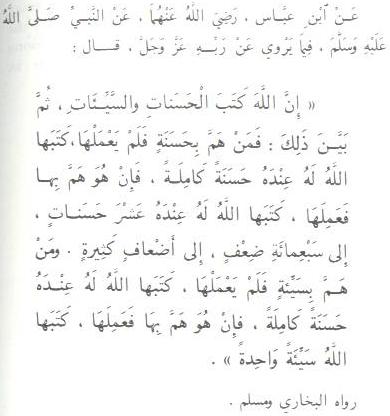 عَنْ ٱبْنِ عَبَّاس ، رَضِيَ اللهُ عَنْهُمَا ، عَنْ النَّبِيِّ صَلَّى اللهُ
عَلَيْهِ وَسَلَّمَ ، فِيمَا يَرْوِي عَنْ رَبِّهِ عَزَّ وَجَلَّ ، قَالَ :
« إِنَّ اللهَ كَتَبَ الْحَسَنَاتِ والسَّيِّئَاتِ ، ثُمَّ
بَيَّنَ ذَلِكَ : فَمَنْ هَمَّ بِحَسَنَةٍ فَلَمْ يَعْمَلْهَا، كَتَبَها
اللهُ لَهُ عِنْدَهُ حَسَنَةً كامِلَةً ، فَإِنْ هُوَ هَمَّ بِهَا
فَعَمِلَهَا ، كَتَبَها اللهُ لَهُ عِنْدَهُ عَشْرَ حَسَنَاتٍ ،
إِلى سَبْعِمائَةِ ضِعْفٍ ، إِلى أَضْعَافٍ كَثِيرَةٍ . وَمَنْ
هَمَّ بِسَيِّئَةٍ فَلَمْ يَعْمَلْهَا ، كَتَبَها اللهُ لَهُ عِنْدَهُ
حَسَنَةً كَامِلَةً ، فإِنْ هُوَ هَمَّ بِهَا فَعَمِلَهَا ، كَتَبَها
اللهُ سَيِّئَةً وَاحِدةً » .
رواه البخاري ومسلم .